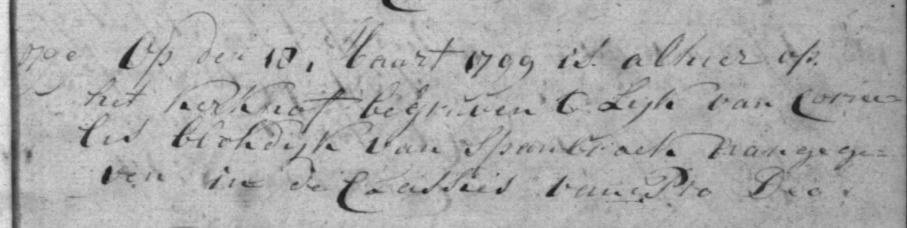 Op den 18, Maart 1799 is alhier op
het kerkhof begraven t Lijk van Corne=
lis blokdijk van Spanbroek aangege=
ven in de Classies van Pro Deo.